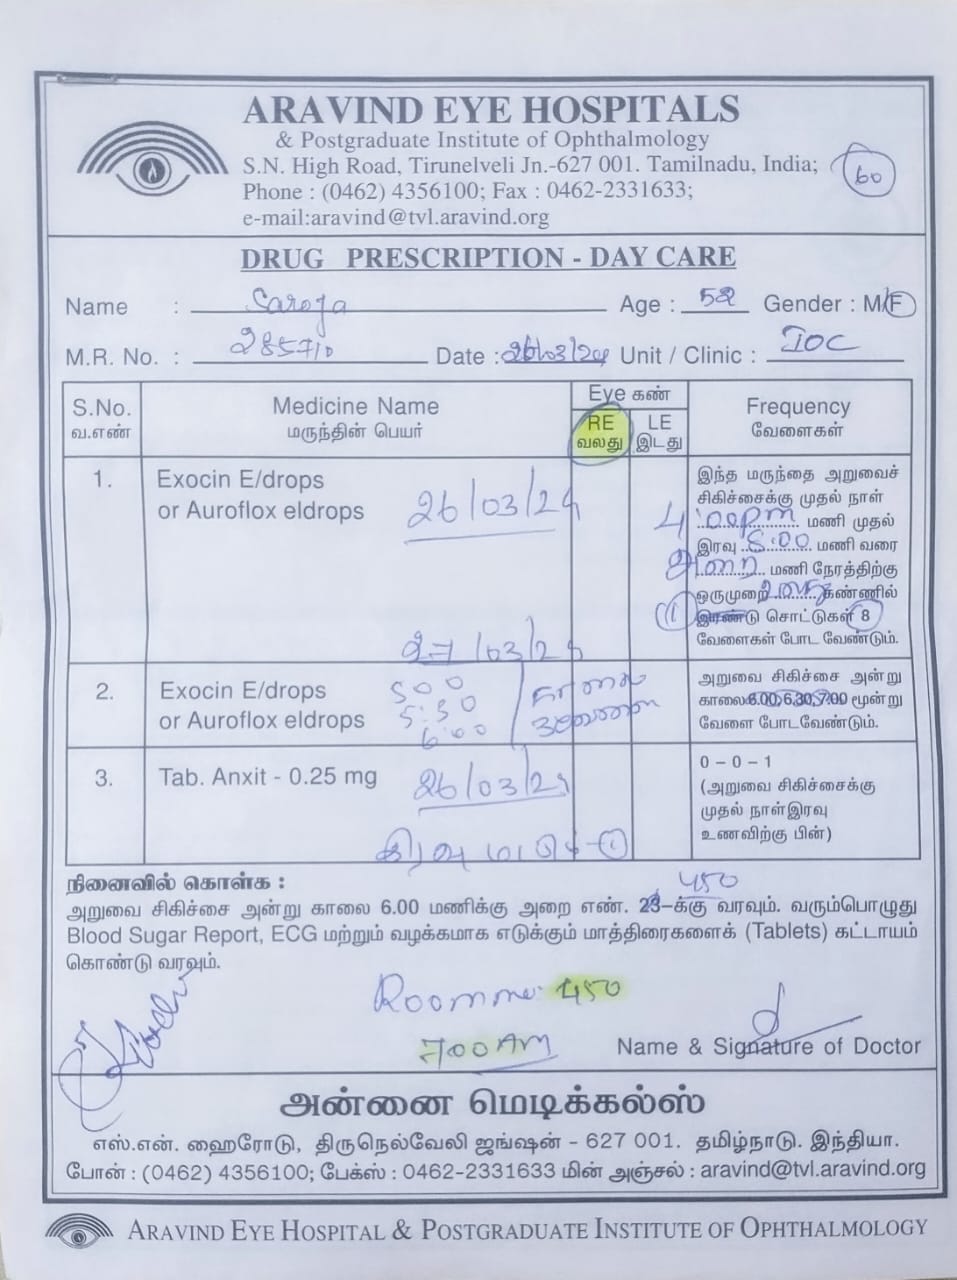 ARAVIND EYE HOSPITALS
& Postgraduate Institute of Ophthalmology
S.N. High Road, Tirunelveli Jn.-627 001. Tamilnadu, India;
60
Phone : (0462) 4356100; Fax : 0462-2331633;
e-mail:aravind@tvl.aravind.org
DRUG PRESCRIPTION - DAY CARE
Name : Saroja Age : 58 Gender : M/F
M.R. No. : 285710 Date : 26/03/24 Unit / Clinic : IOC
S.No. Medicine Name Eye கண் Frequency
வ.எண் மருந்தின் பெயர் RE LE வேளைகள்
வலது இடது
1. Exocin E/drops
or Auroflox eldrops 26/03/24
இந்த மருந்தை அறுவைச்
சிகிச்சைக்கு முதல் நாள்
4:00pm மணி முதல்
இரவு 8:00 மணி வரை
அரை மணி நேரத்திற்கு
ஒருமுறை வலது கண்ணில்
(1) இரண்டு சொட்டுகள் 8
வேளைகள் போட வேண்டும்.
27/03/24
2. Exocin E/drops
or Auroflox eldrops
5:00
5:30
6:00
காலை
அறுவை சிகிச்சை அன்று
காலை 6.00, 6.30, 7.00 மூன்று
வேளை போடவேண்டும்.
3. Tab. Anxit - 0.25 mg 26/03/24
இரவு -(1)
0 – 0 – 1
(அறுவை சிகிச்சைக்கு
முதல் நாள்இரவு
உணவிற்கு பின்)
நினைவில் கொள்க :
450
அறுவை சிகிச்சை அன்று காலை 6.00 மணிக்கு அறை எண். 23–க்கு வரவும். வரும்பொழுது
Blood Sugar Report, ECG மற்றும் வழக்கமாக எடுக்கும் மாத்திரைகளைக் (Tablets) கட்டாயம்
கொண்டு வரவும்.
450
7:00 AM
Name & Signature of Doctor
அன்னை மெடிக்கல்ஸ்
எஸ்.என். ஹைரோடு, திருநெல்வேலி ஜங்ஷன் - 627 001. தமிழ்நாடு. இந்தியா.
போன் : (0462) 4356100; பேக்ஸ் : 0462-2331633 மின் அஞ்சல் : aravind@tvl.aravind.org
ARAVIND EYE HOSPITAL & POSTGRADUATE INSTITUTE OF OPHTHALMOLOGY